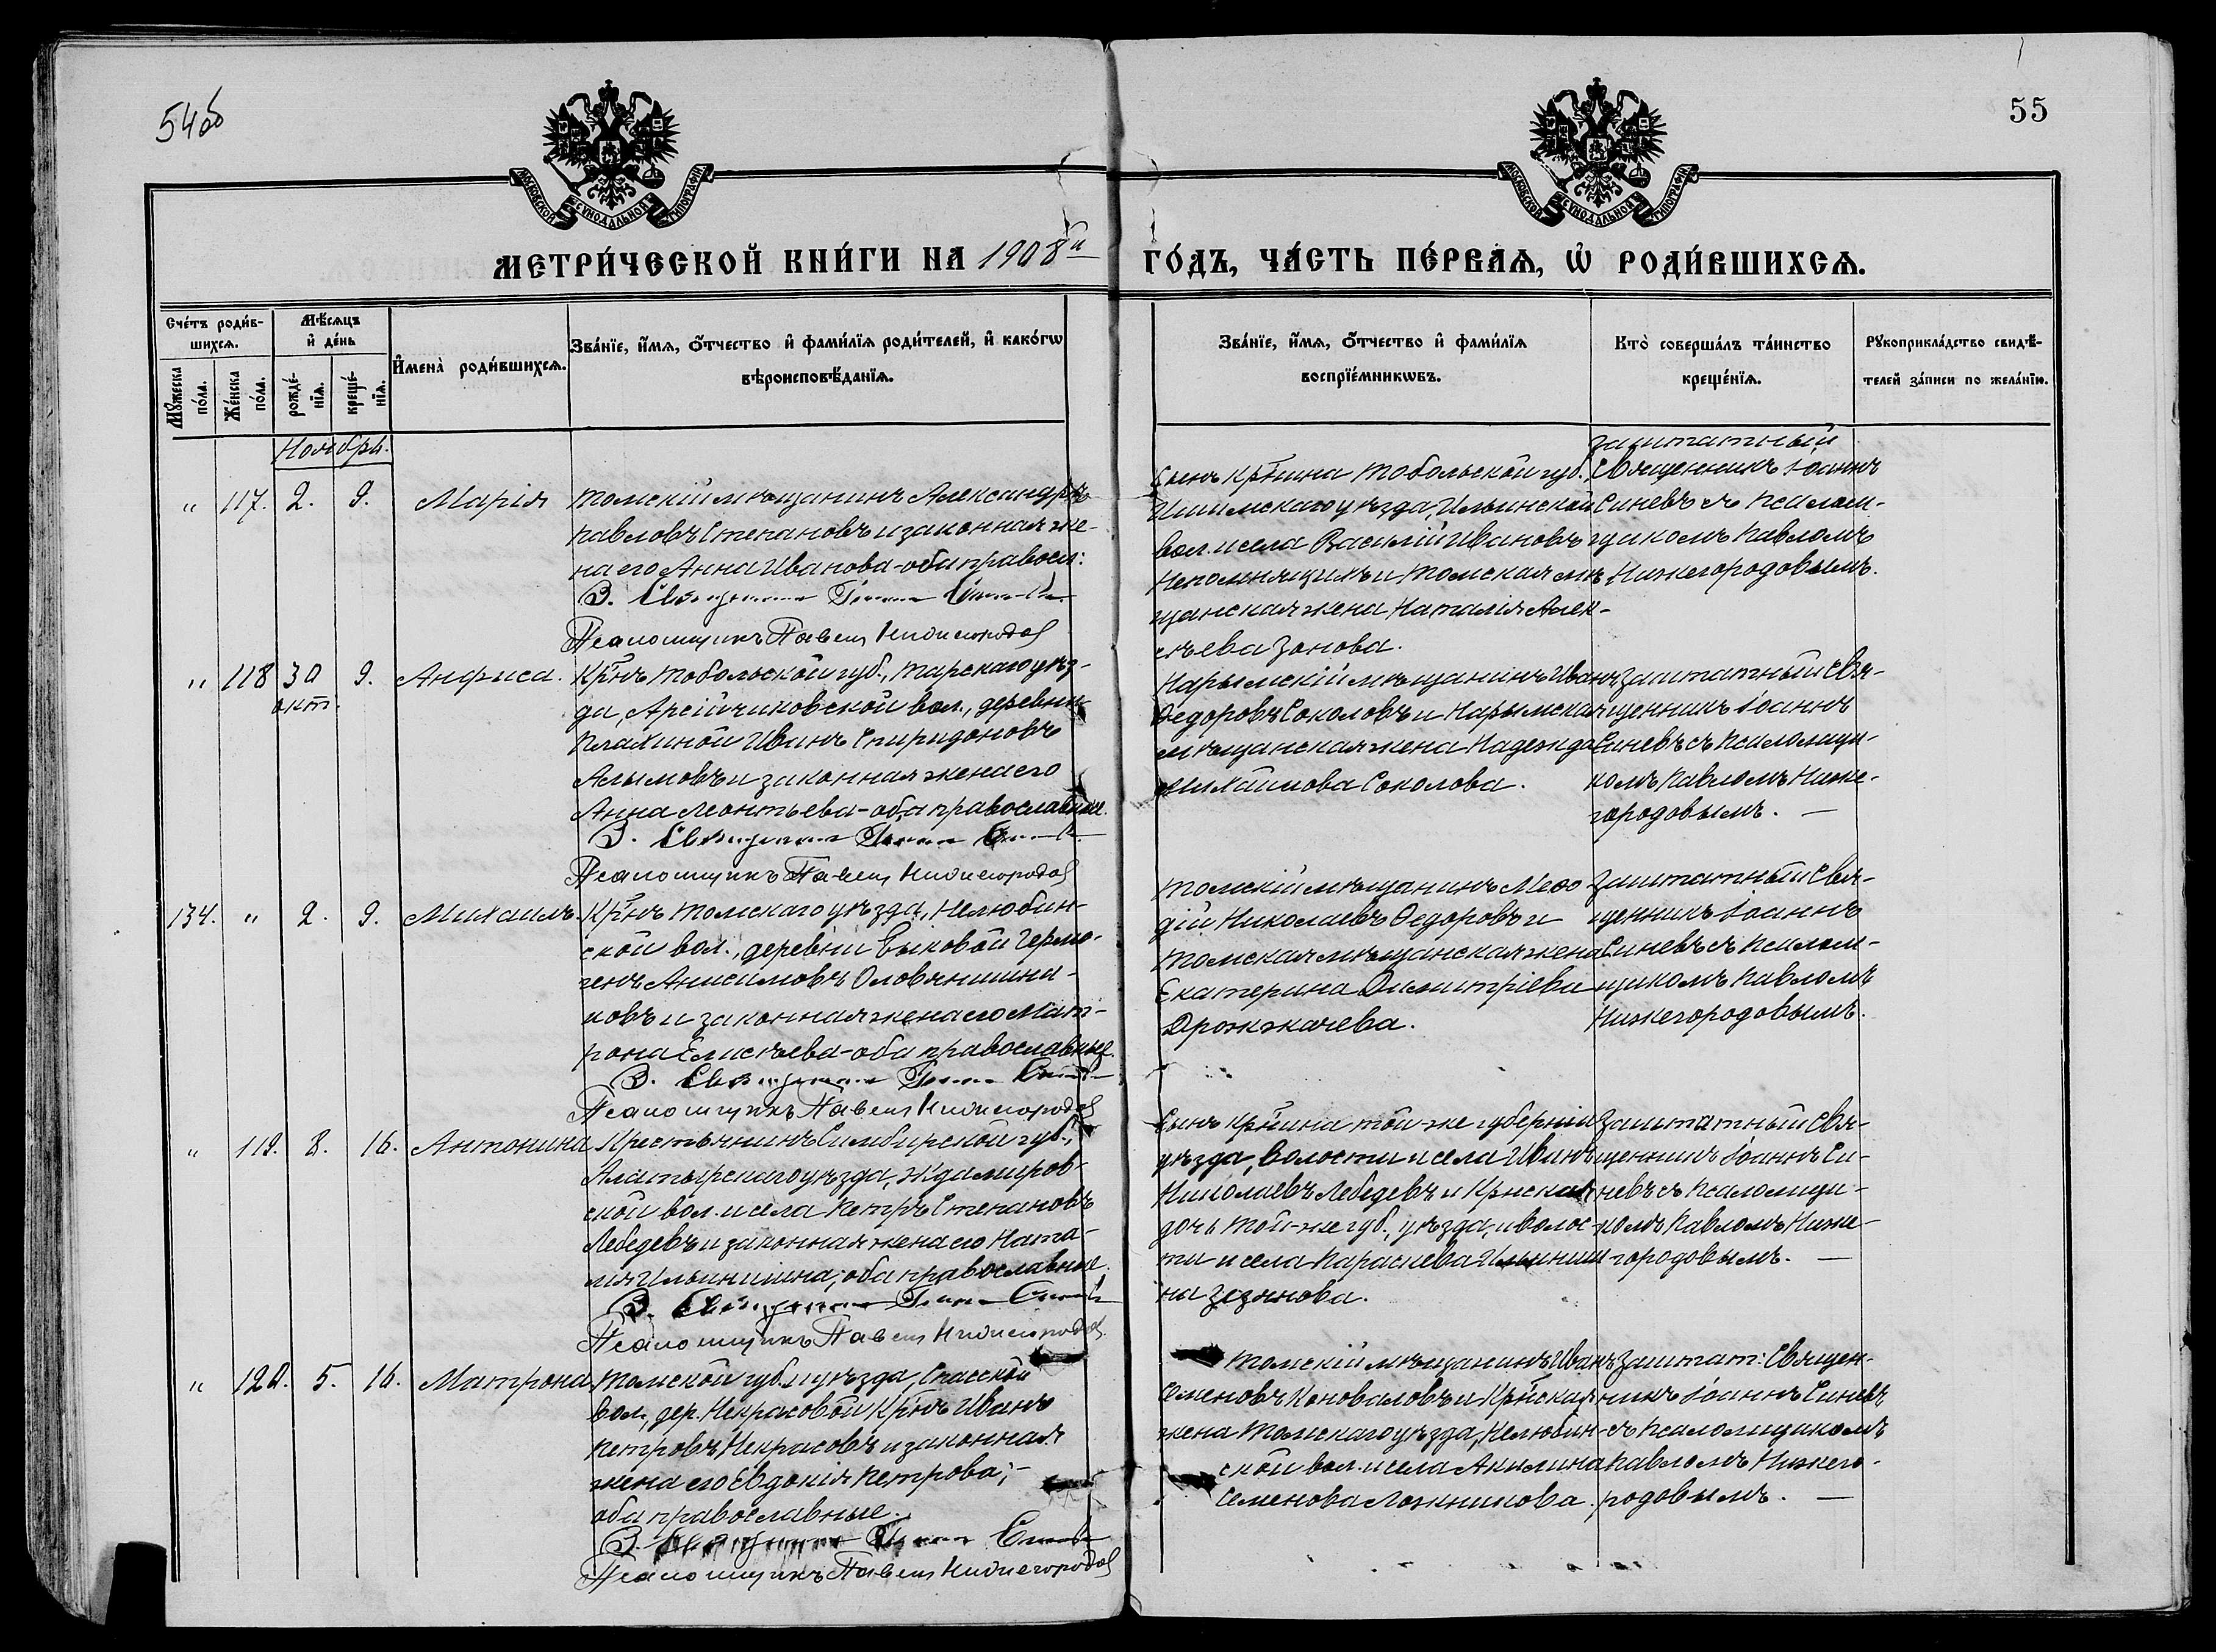 54об
55
МОСКОВСКОЙ СѴНОДАЛЬНОЙ ТИПОГРАФІИ
МОСКОВСКОЙ СѴНОДАЛЬНОЙ ТИПОГРАФІИ
МЕТРИ́ЧЕСКОЙ КНИ́ГИ НА 1908й ГО́ДЪ, ЧА́СТЬ ПЕ́РВАѦ, Ѡ РОДИ́ВШИХСѦ.
Сче́тъ роди́в-
шихсѧ.
Мꙋ́жеска
по́ла.
Же́нска
по́ла.
Мѣ́сѧцъ
и҆ де́нь
рожде́-
нїѧ.
креще́-
нїѧ.
И҆мена̀ роди́вшихсѧ.
Зва́нїе, и҆́мѧ, ѻ҆́тчество и҆ фами́лїѧ роди́телей, и҆ како́гѡ
вѣроисповѣ́данїѧ.
Зва́нїе, и҆́мѧ, ѻ҆́тчество и҆ фами́лїѧ
воспрїе́мникѡвъ.
Кто̀ соверша́лъ та́инство
креще́нїѧ.
Рꙋкоприкла́дство свидѣ́-
телей за́писи по жела́нїю.
Ноября.
" 117. 2. 9. Марія
Томскій мѣщанинъ Александръ
Павловъ Степановъ и законная же-
на его Анна Иванова - оба правосл:
З. Священникъ Іоаннъ Синевъ
Псаломщикъ Павелъ Нижегородов
Сынъ кр-нина Тобольской губ.,
Ишимскаго уѣзда, Ильинской
вол. и села Василій Ивановъ
Непомнящихъ и Томская мѣ-
щанская жена Наталія Алек-
сѣева Зонова.
Заштатный
Священникъ Іоаннъ
Синевъ съ псалом-
щикомъ Павломъ
Нижегородовымъ.
" 118 30 окт. 9. Анфиса.
Кр-нъ Тобольской губ., Тарскаго уѣз-
да, вол., деревни
Плахиной Иванъ Спиридоновъ
Алымовъ и законная жена его
Анна Леонтьева - оба православные.
З. Священникъ Іоаннъ Синевъ
Псаломщикъ Павелъ Нижегородов
Нарымскій мѣщанинъ Иванъ
Ѳедоровъ Соколовъ и Нарымская
мѣщанская жена Надежда
Михаилова Соколова.
Заштатный Свя-
щенникъ Іоаннъ
Синевъ съ псаломщи-
комъ Павломъ Ниже-
городовымъ. —
134. " 2. 9. Михаилъ.
Кр-нъ Томскаго уѣзда, Нелюбин-
ской вол., деревни Быковой Гермо-
генъ Анисимовъ Оловянишни-
ковъ и законная жена его Мат-
рона Елисѣева - оба православные.
З. Священникъ Іоаннъ Синевъ
Псаломщикъ Павелъ Нижегородов
Томскій мѣщанинъ Меѳо
дій Николаевъ Ѳедоровъ и
Томская мѣщанская жена
Екатерина Димитріева
Дрожжачева.
Заштатный Свя-
щенникъ Іоаннъ
Синевъ съ псалом-
щикомъ Павломъ
Нижегородовымъ.
" 119. 8. 16. Антонина
Крестьянинъ Симбирской губ.,
Алатырскаго уѣзда, Ждамиров-
ской вол. и села Петръ Степановъ
Лебедевъ и законная жена его Ната-
лія Ильинишна; оба православные.
З. Священникъ Іоаннъ Синевъ
Псаломщикъ Павелъ Нижегородов.
Сынъ кр-нина той-же губерніи
уѣзда, волости и села Иванъ
Николаевъ Лебедевъ и Кр-нская
дочь той-же губ., уѣзда, и волос-
ти и села Параскева Ильиниш
на
Заштатный Свя-
щенникъ Іоаннъ Си-
невъ съ псаломщи-
комъ Павломъ Ниже-
городовымъ. —
" 120. 5. 16. Матрона
Томской губ. и уѣзда, Спасской
вол., дер. Некрасовой Кр-нъ Иванъ
Петровъ Некрасовъ и законная
жена его Евдокія Петрова; -
оба православные.
З. Священникъ Іоаннъ Синевъ
Псаломщикъ Павелъ Нижегородов
Томскій мѣщанинъ Иванъ
Семеновъ Коноваловъ и Кр-нская
жена Томскаго уѣзда, Нелюбин-
ской вол. и села Акилина
Семенова Ложникова.
Заштат: Священ-
никъ Іоаннъ Синевъ
съ псаломщикомъ
Павломъ Нижего-
родовымъ. —